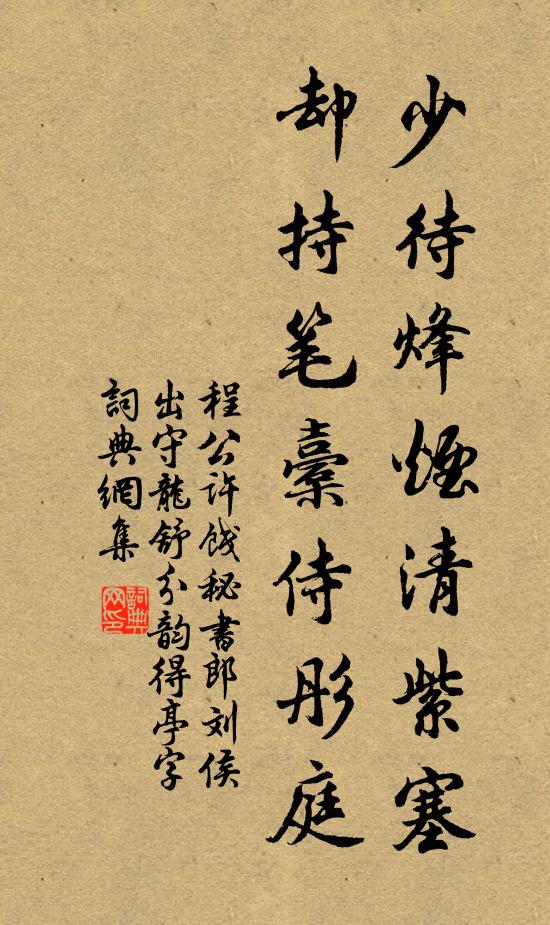 少待烽煙清紫塞
却持笔橐侍彤庭
程公许饯秘書郎刘侯
出守龍舒分韵得亭字
詞典網集
詞典网印